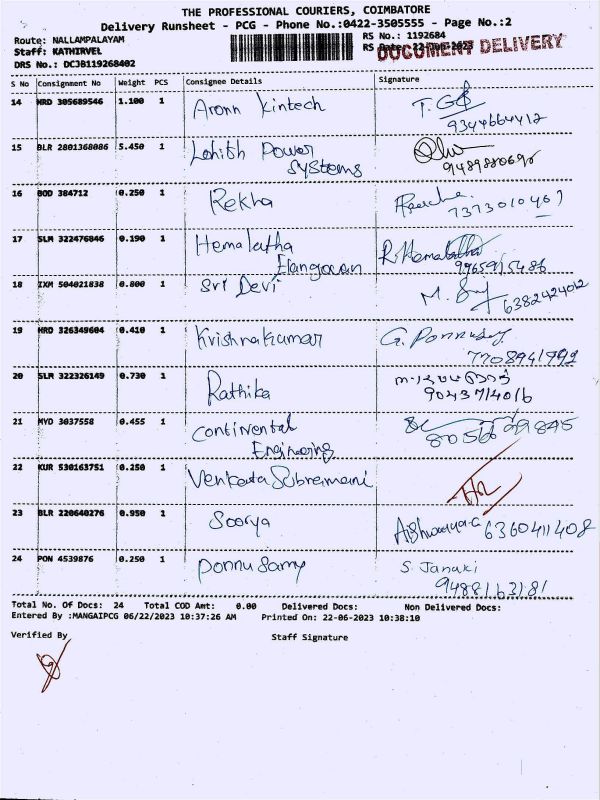 THE PROFESSIONAL COURIERS, COIMBATORE
Delivery Runsheet - PCG - Phone No.:0422-3505555 - Page No.:2
Route: NALLAMPALAYAM
RS No.: 1192684
Staff: KATHIRVEL
RS Date: 22-Jun-2023
DOCUMENT DELIVERY
DRS No.: DCJB119268402
S No Consignment No Weight PCS Consignee Details Signature
14 HRD 305689546 1.100 1 Aronn Kintech
9344664412
15 BLR 2801368086 5.450 1 Lohith Power
Systems
16 BOD 384712 0.250 1 Rekha
7373010467
17 SLM 322476846 0.190 1 Hemalatha R.Hemalatha
Elangovan
18 IXM 504021838 0.800 1 Sri Devi
6382424012
19 HRD 326349604 0.410 1 Krishnakumar G. Ponnusamy
7708941792
20 SLM 322326149 0.730 1 Rathika
9043714016
21 MYD 3037558 0.455 1 Continental
Engineering
22 KUR 530163751 0.250 1 Venkata Subremani
23 BLR 220640276 0.950 1 Soorya Aishwarya.G 6360411408
24 PON 4539876 0.250 1 Ponnu Samy S. Janaki
9488163181
Total No. Of Docs: 24 Total COD Amt: 0.00 Delivered Docs: Non Delivered Docs:
Entered By :MANGAIPCG 06/22/2023 10:37:26 AM Printed On: 22-06-2023 10:38:10
Verified By Staff Signature